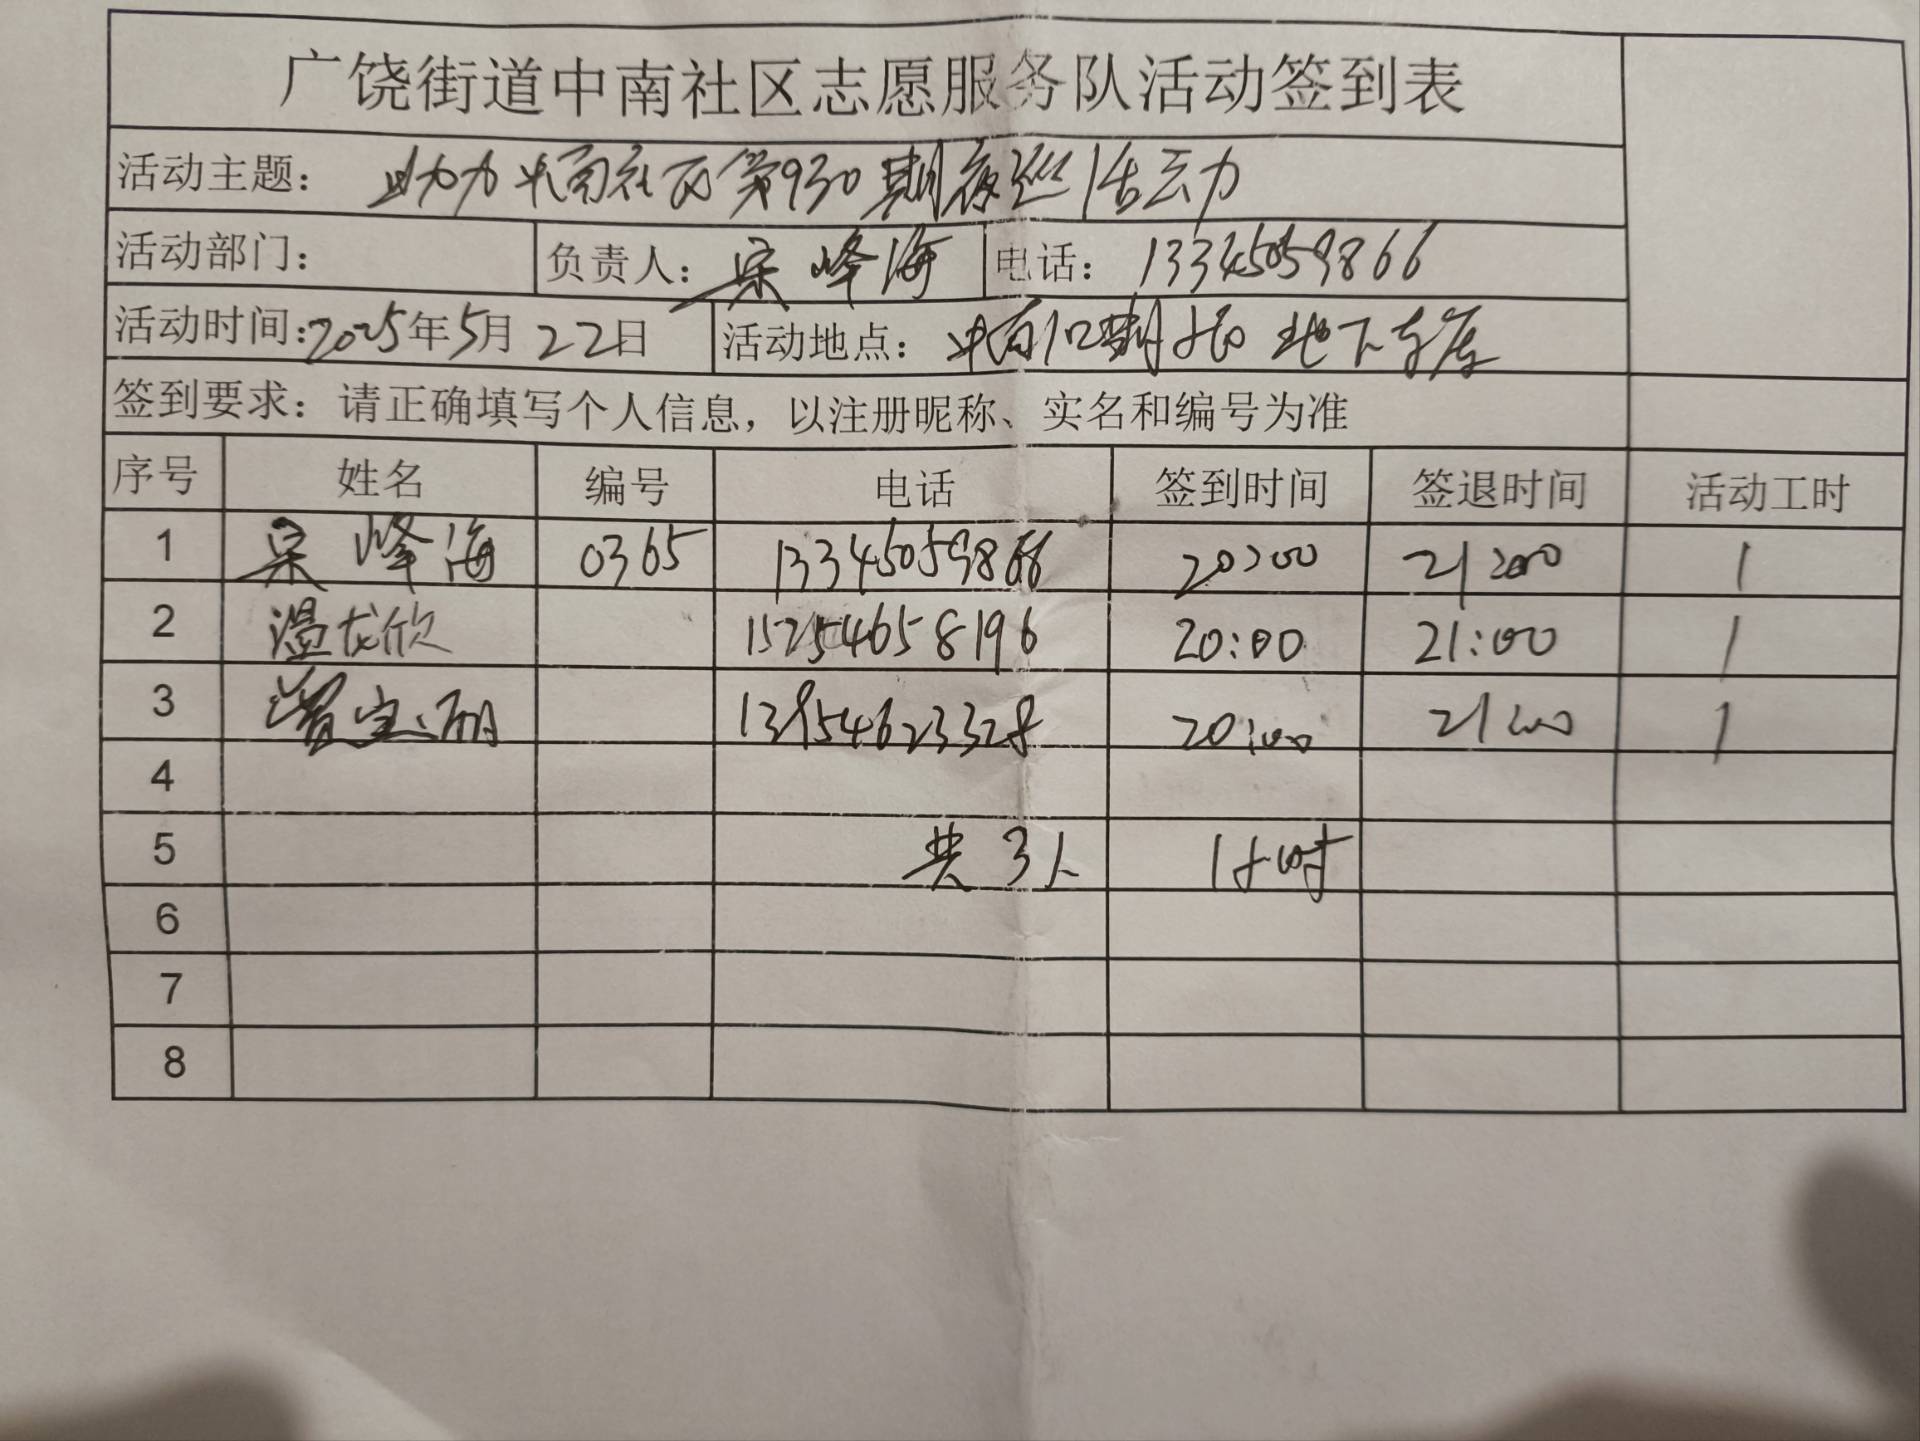 广饶街道中南社区志愿服务队活动签到表
活动主题： 助力中南社区第930期夜巡活动
活动部门： 负责人： 宋峰海 电话： 13345059866
活动时间：2025年5月22日 活动地点： 中南 期 地下车库
签到要求：请正确填写个人信息，以注册昵称、实名和编号为准
序号 姓名 编号 电话 签到时间 签退时间 活动工时
1 宋峰海 0365 13345059866 20:00 21:00 1
2 温龙欣 15254658196 20:00 21:00 1
3 宝丽 13954623328 20:00 21:00 1
4
5 共3人 1小时
6
7
8